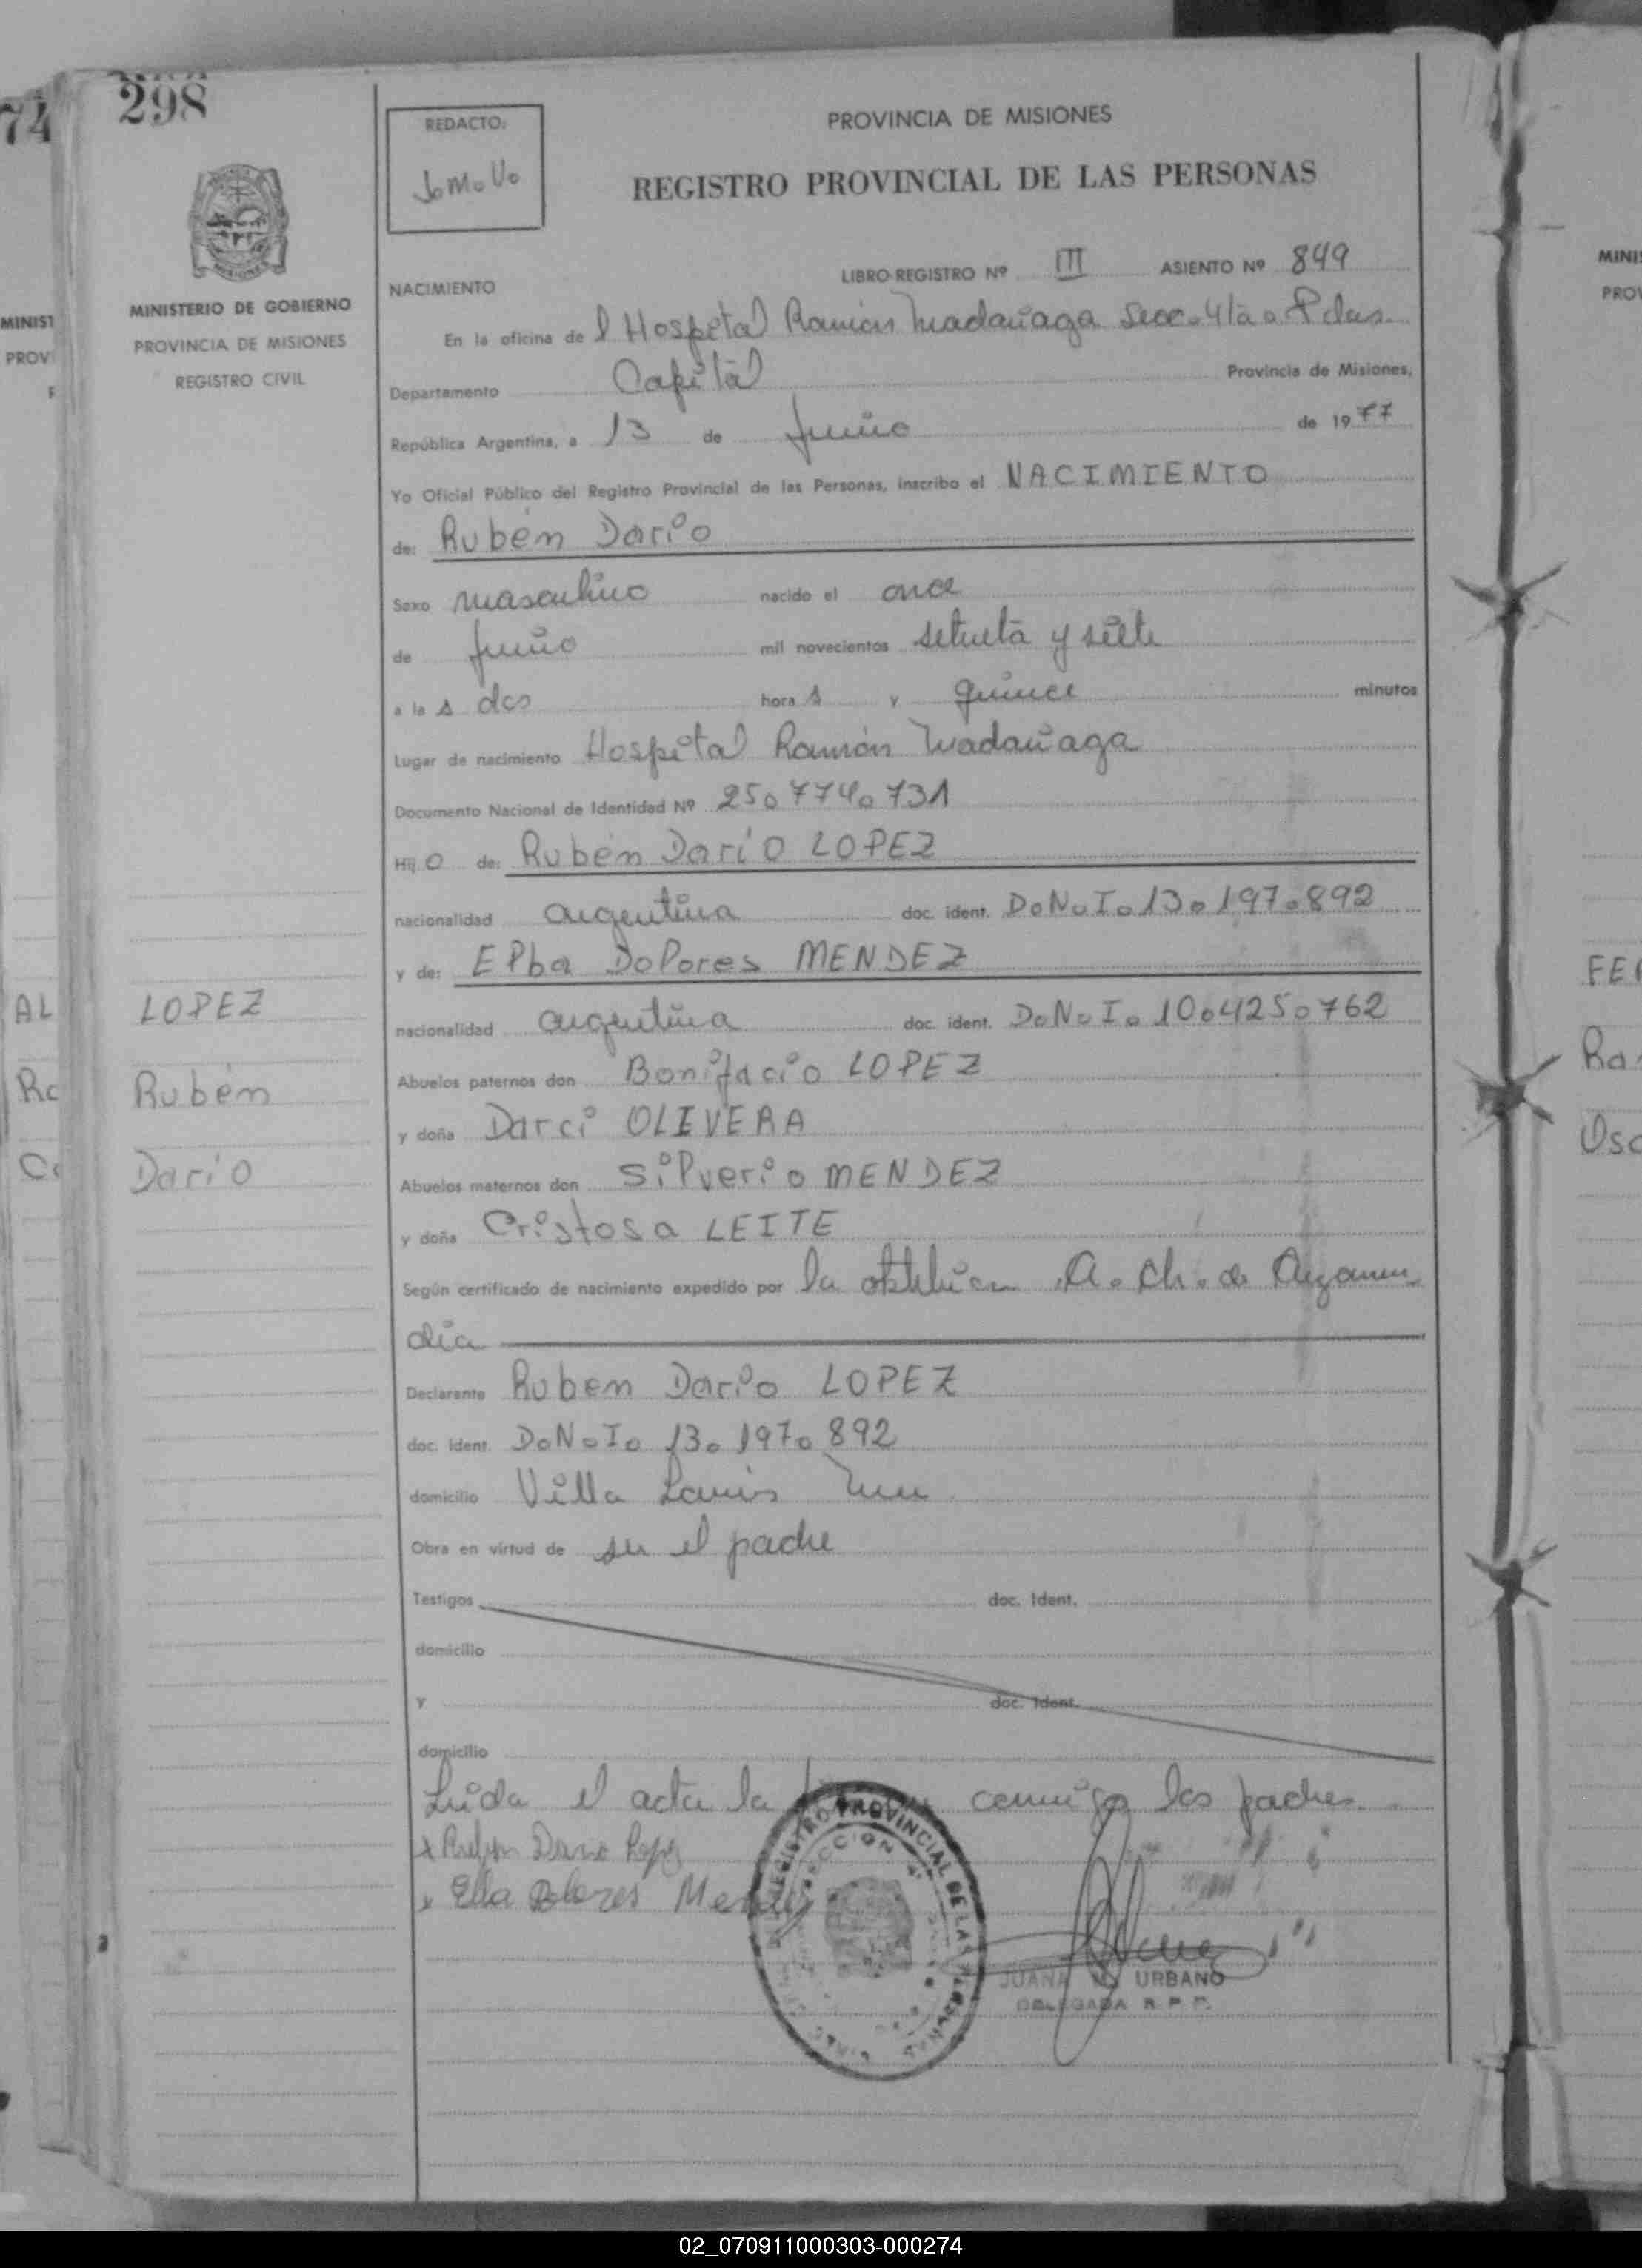 74
298
REDACTO:
J.M.U.
PROVINCIA DE MISIONES
REGISTRO PROVINCIAL DE LAS PERSONAS
MINISTERIO DE GOBIERNO
PROVINCIA DE MISIONES
REGISTRO CIVIL
NACIMIENTO
LIBRO-REGISTRO Nº III ASIENTO Nº 849
En la oficina de l Hospital Ramón Madariaga Secc. 4ta. Pdas.
Departamento Capital Provincia de Misiones,
República Argentina, a 13 de junio de 1977
Yo Oficial Público del Registro Provincial de las Personas, inscribo el NACIMIENTO
de: Rubén Dario
Sexo masculino nacido el once
de junio mil novecientos setenta y siete
a la s dos hora s y quince minutos
Lugar de nacimiento Hospital Ramón Madariaga
Documento Nacional de Identidad Nº 25.774.731
Hij o de: Rubén Darío LOPEZ
nacionalidad argentina doc. ident. D.N.I. 13.197.892
y de: Elba Dolores MENDEZ
nacionalidad argentina doc. ident. D.N.I. 10.425.762
Abuelos paternos don Bonifacio LOPEZ
y doña Darci OLIVERA
Abuelos maternos don Silverio MENDEZ
y doña Cristosa LEITE
Según certificado de nacimiento expedido por la A. Ch. de
día
Declarante Ruben Dario LOPEZ
doc. ident. D.N.I. 13.197.892
domicilio Villa Lanús
Obra en virtud de ser el padre
Testigos doc. ident.
domicilio
y doc. ident.
domicilio
Leida el acta la conmigo los padres.
x Ruben Dario Lopez
x Elba Dolores Mendez
REGISTRO PROVINCIAL DE LAS PERSONAS
SECCION 4ª
JUANA URBANO
DELEGADA R. P. P.
LOPEZ
Rubén
Darío
MINIST
PROVI
AL
MINIS
PROV
Ra
02_070911000303-000274